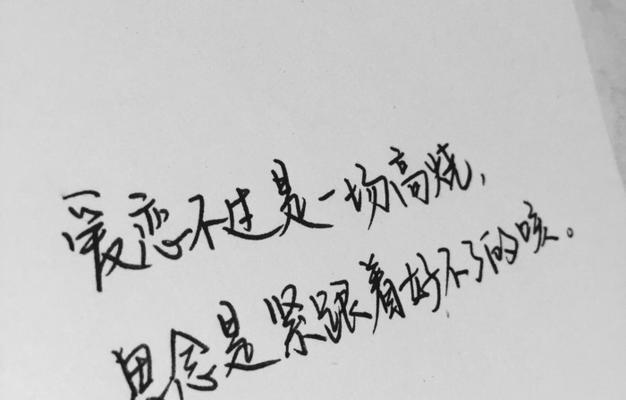 爱恋不过是一场高烧,
思念是紧跟着好不了的咳。